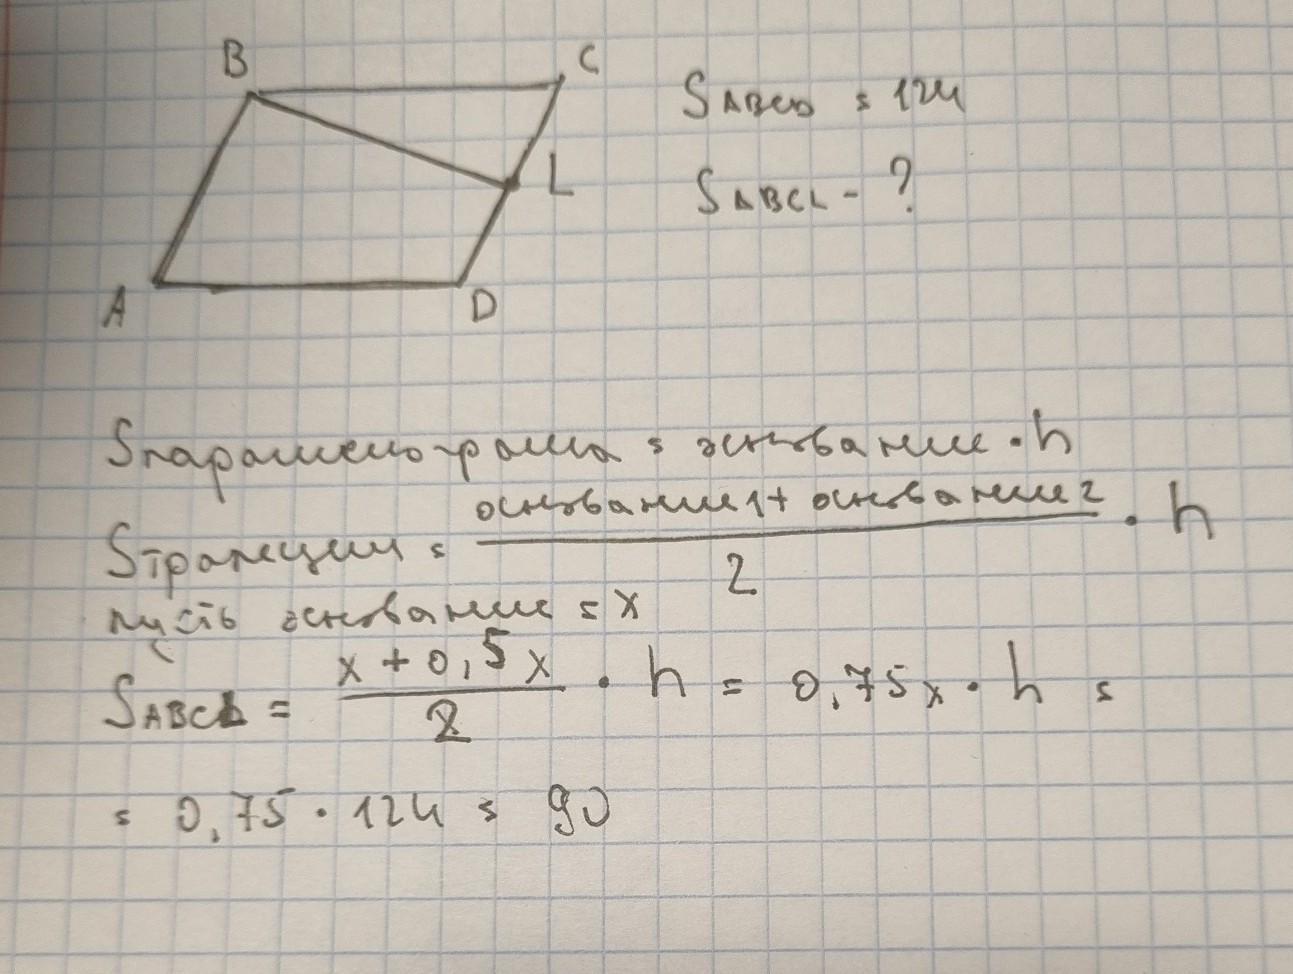 B
C
S ABCD = 124
L
S ABCL - ?
A
D
Sпараллелограмма = основание · h
Sтрапеции = основание 1 + основание 2 / 2 · h
пусть основание = x
S ABCL = x + 0,5x / 2 · h = 0,75x · h =
= 0,75 · 124 = 90